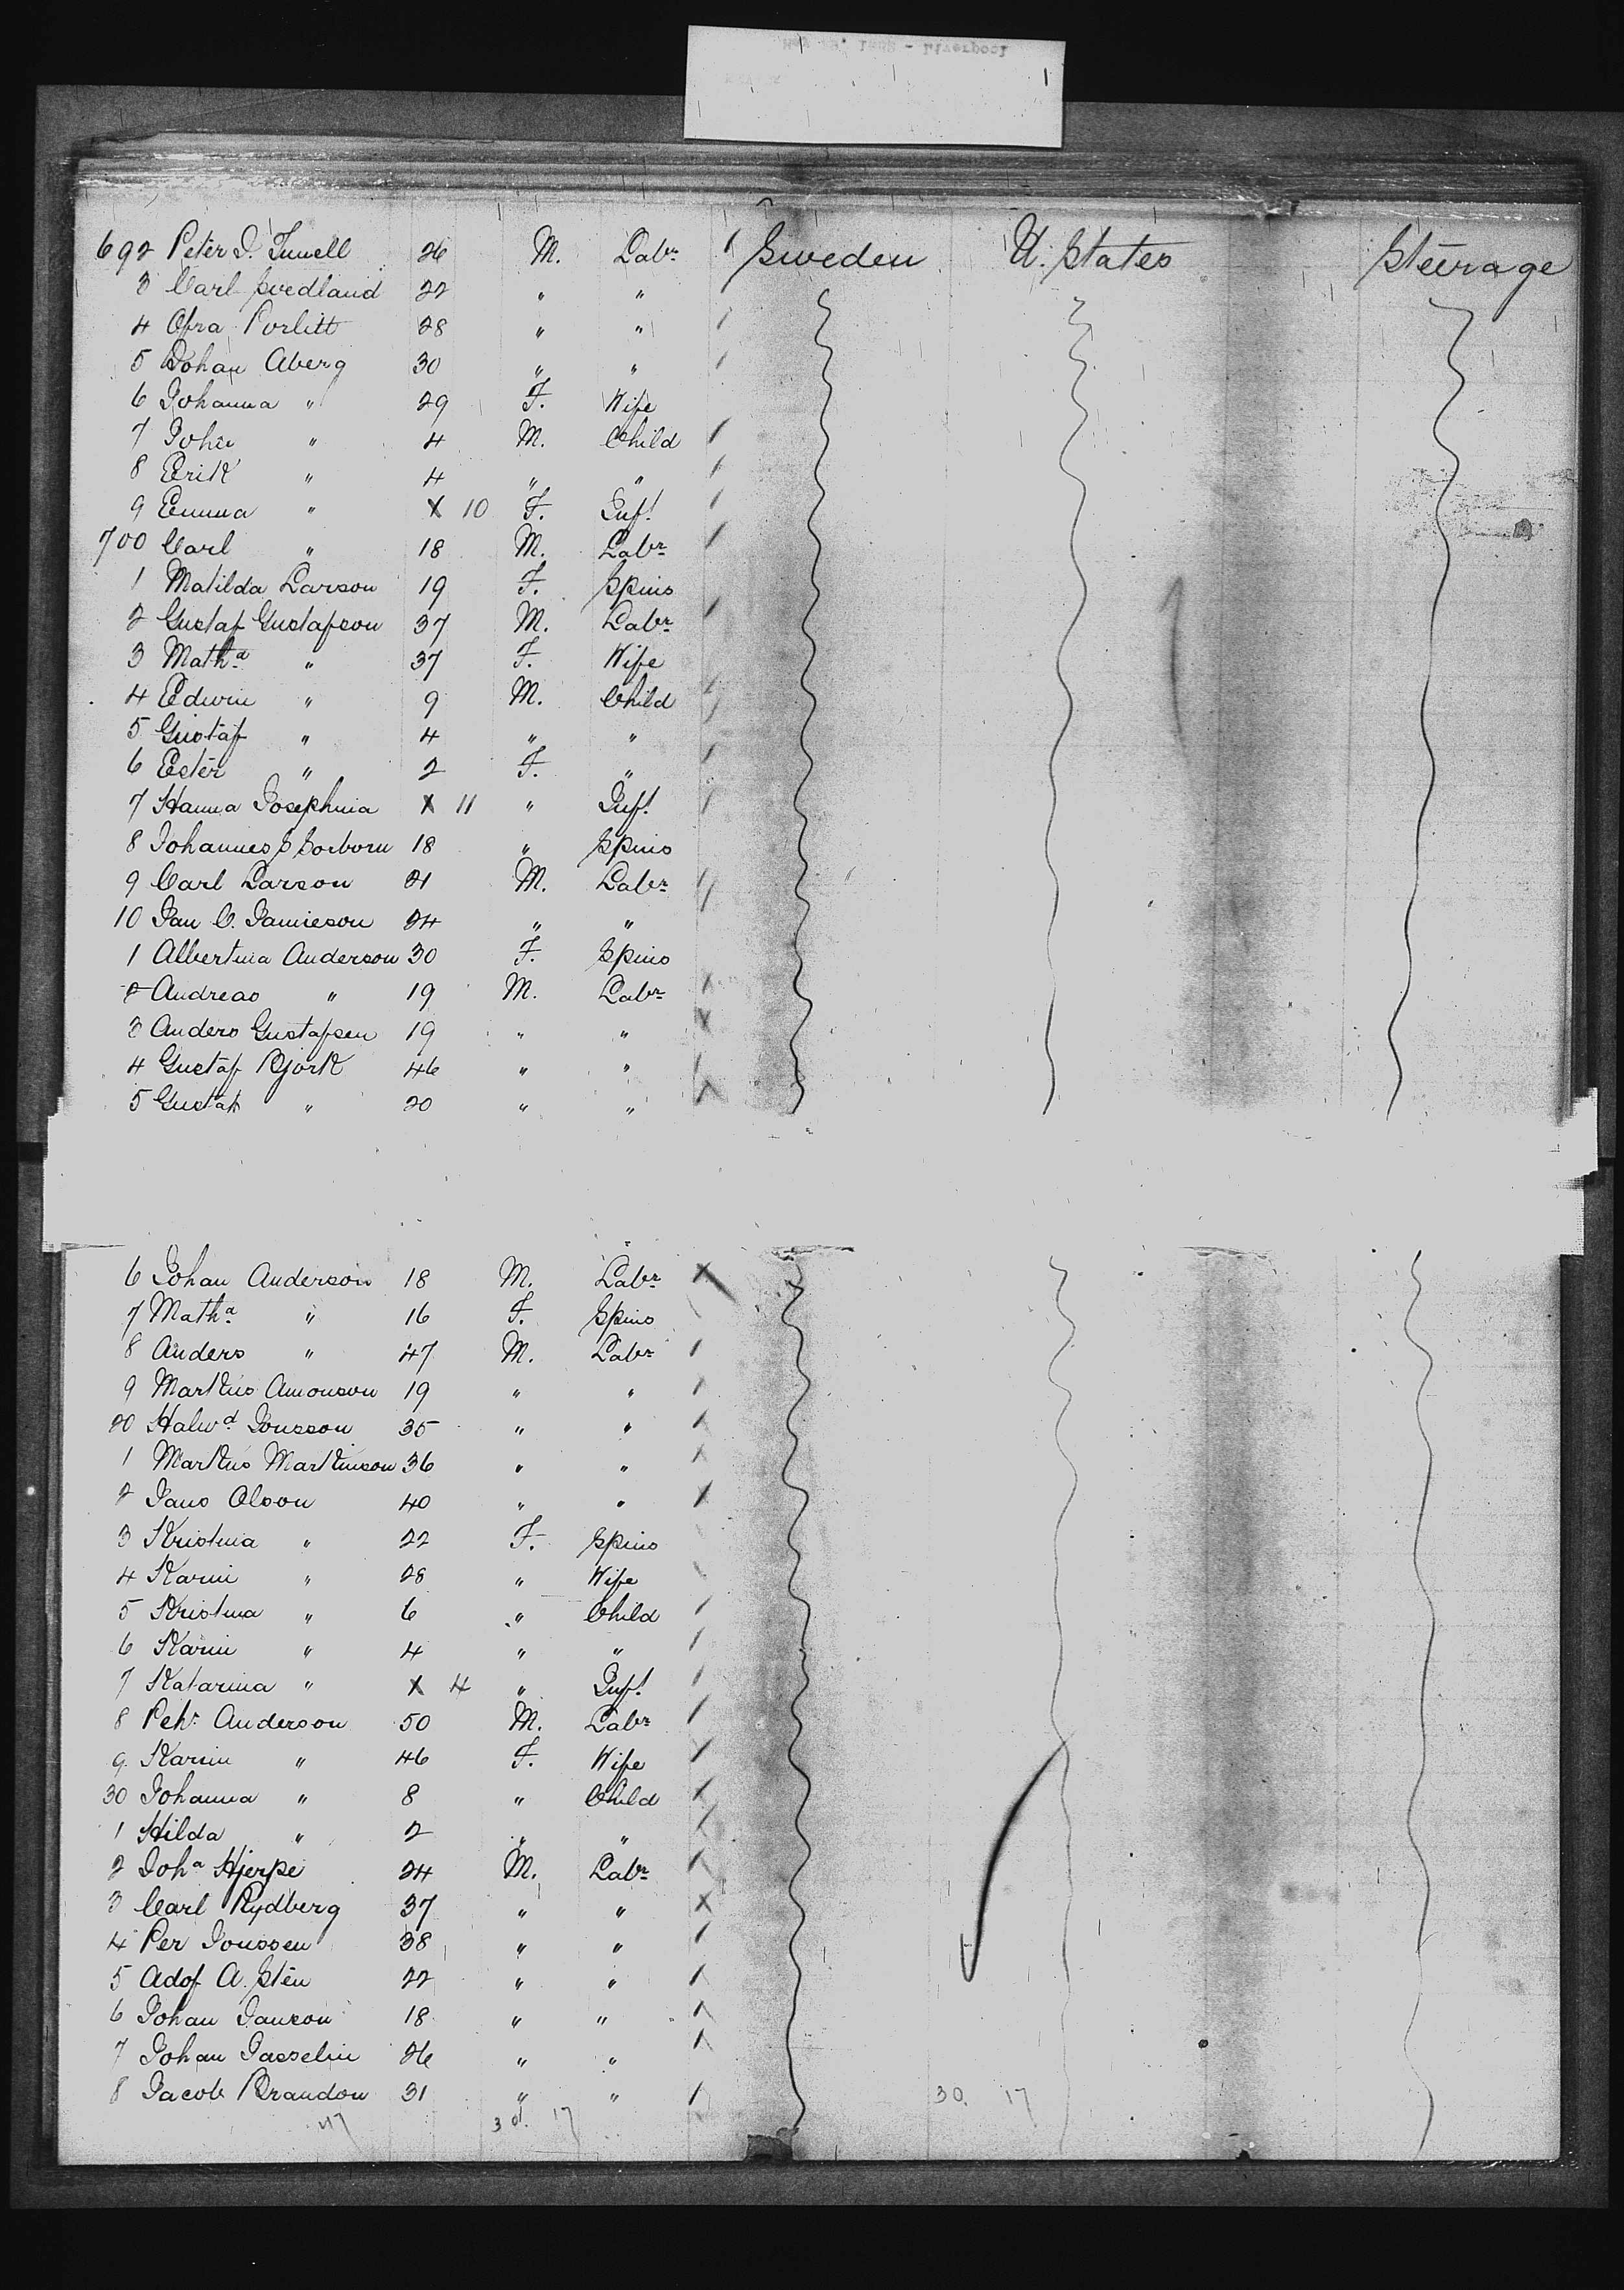 692 Peter J. Tunell 26 M. Labr. Sweden U. States Steerage
3 Carl Svedland 22 " "
4 Ofra Porlitt 28 " "
5 Johan Aberg 30 " "
6 Johanna " 29 F. Wife
7 John " 4 M. Child
8 Erik " 4 " "
9 Emma " X 10 F. Inft
700 Carl " 18 M. Labr
1 Matilda Larson 19 F. Spins
2 Gustaf Gustafson 37 M. Labr
3 Matha " 37 F. Wife
4 Edwin " 9 M. Child
5 Gustaf " 4 " "
6 Ester " 2 F. "
7 Hanna Josephina X 11 " Inft
8 Johannes S Sorborn 18 " Spins
9 Carl Larson 21 M. Labr
10 Jan C. Jamieson 24 " "
1 Albertina Anderson 30 F. Spins
2 Andreas " 19 M. Labr
3 Anders Gustafsen 19 " "
4 Gustaf Bjork 46 " "
5 Gustaf " 20 " "
6 Johan Anderson 18 M. Labr
7 Matha " 16 F. Spins
8 Anders " 47 M. Labr
9 Markus Amonson 19 " "
20 Halwd Jonsson 35 " "
1 Markus Markinson 36 " "
2 Jans Olson 40 " "
3 Kristina " 22 F. Spins
4 Karin " 28 " Wife
5 Kristina " 6 " Child
6 Karin " 4 " "
7 Katarina " X 4 " Inft
8 Pehr Anderson 50 M. Labr
9 Karin " 46 F. Wife
30 Johanna " 8 " Child
1 Hilda " 2 " "
2 Joha Hjerpe 24 M. Labr
3 Carl Rydberg 37 " "
4 Per Jonssen 38 " "
5 Adof A. Sten 22 " "
6 Johan Janson 18 " "
7 Johan Jasselin 26 " "
8 Jacob Brandon 31 " "
47 30. 17 30. 17